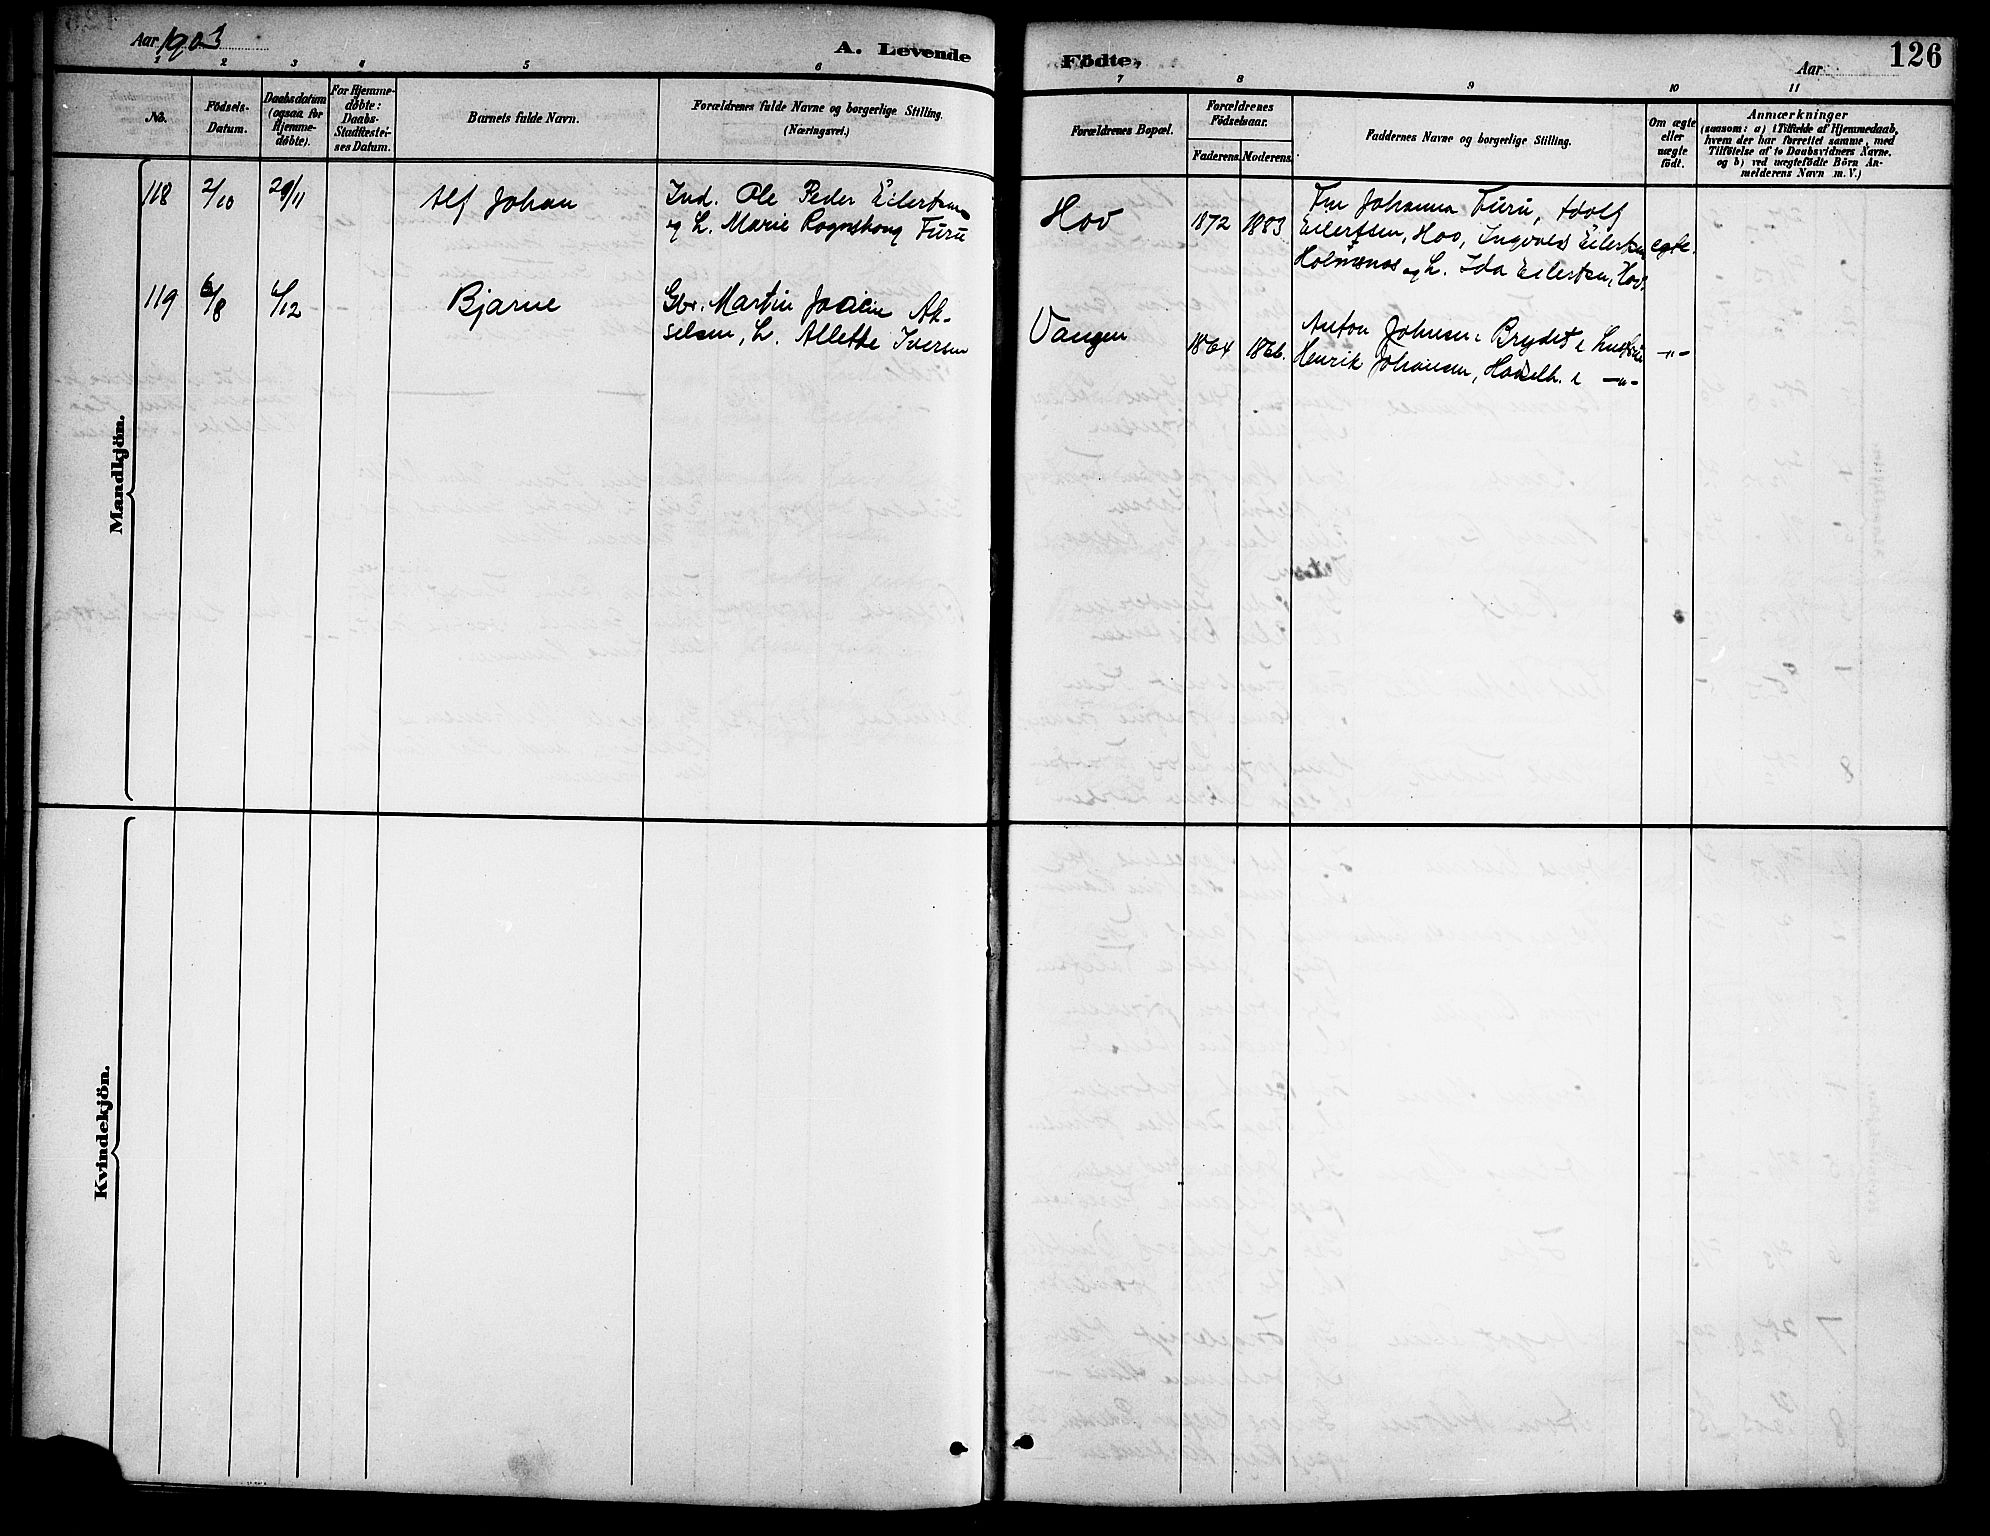 Aar 1903
A. Levende
Födte,
Aar
126
1 2 3 4 5 6 7 8 9 10 11
No.
Födsels-Datum.
Daabsdatum (ogsaa for Hjemme-døbte).
For Hjemme-døbte: Daabs-Stadfæstel-ses Datum.
Barnets fulde Navn.
Forældrenes fulde Navne og borgerlige Stilling. (Næringsvei.)
Forældrenes Bopæl.
Forældrenes Födselsaar.
Faderens. Moderens.
Faddernes Navne og borgerlige Stilling.
Om ægte eller uægte födt.
Anmærkninger
(saasom: a) i Tilfælde af Hjemmedaab,
hvem der har forrettet samme, med
Tilföielse af to Daabsvidners Navne.
og b) ved uægtefödte Börn An-
melderens Navn m. V.)
Mandkjön.
118 2/10 29/11 Alf Johan
Ind. Ole Peder Eilertsen
og h. Marie Rognskoug Furu
Hov 1872 1883
Fru Johanna Furu, Adolf
Eilertsen, Hov, Ingvald Eilertsen
Holmsnes og h. Ida Eilertsen, Hov.
egte.
119 6/8 6/12 Bjarne
Gbr. Martin Ak-
selsen, h. Allette Iversen
Vangen 1864 1866.
Anton Johnsen Brydet
Henrik Johansen, Hadselh. i —"—
—"—
Kvindekjön.